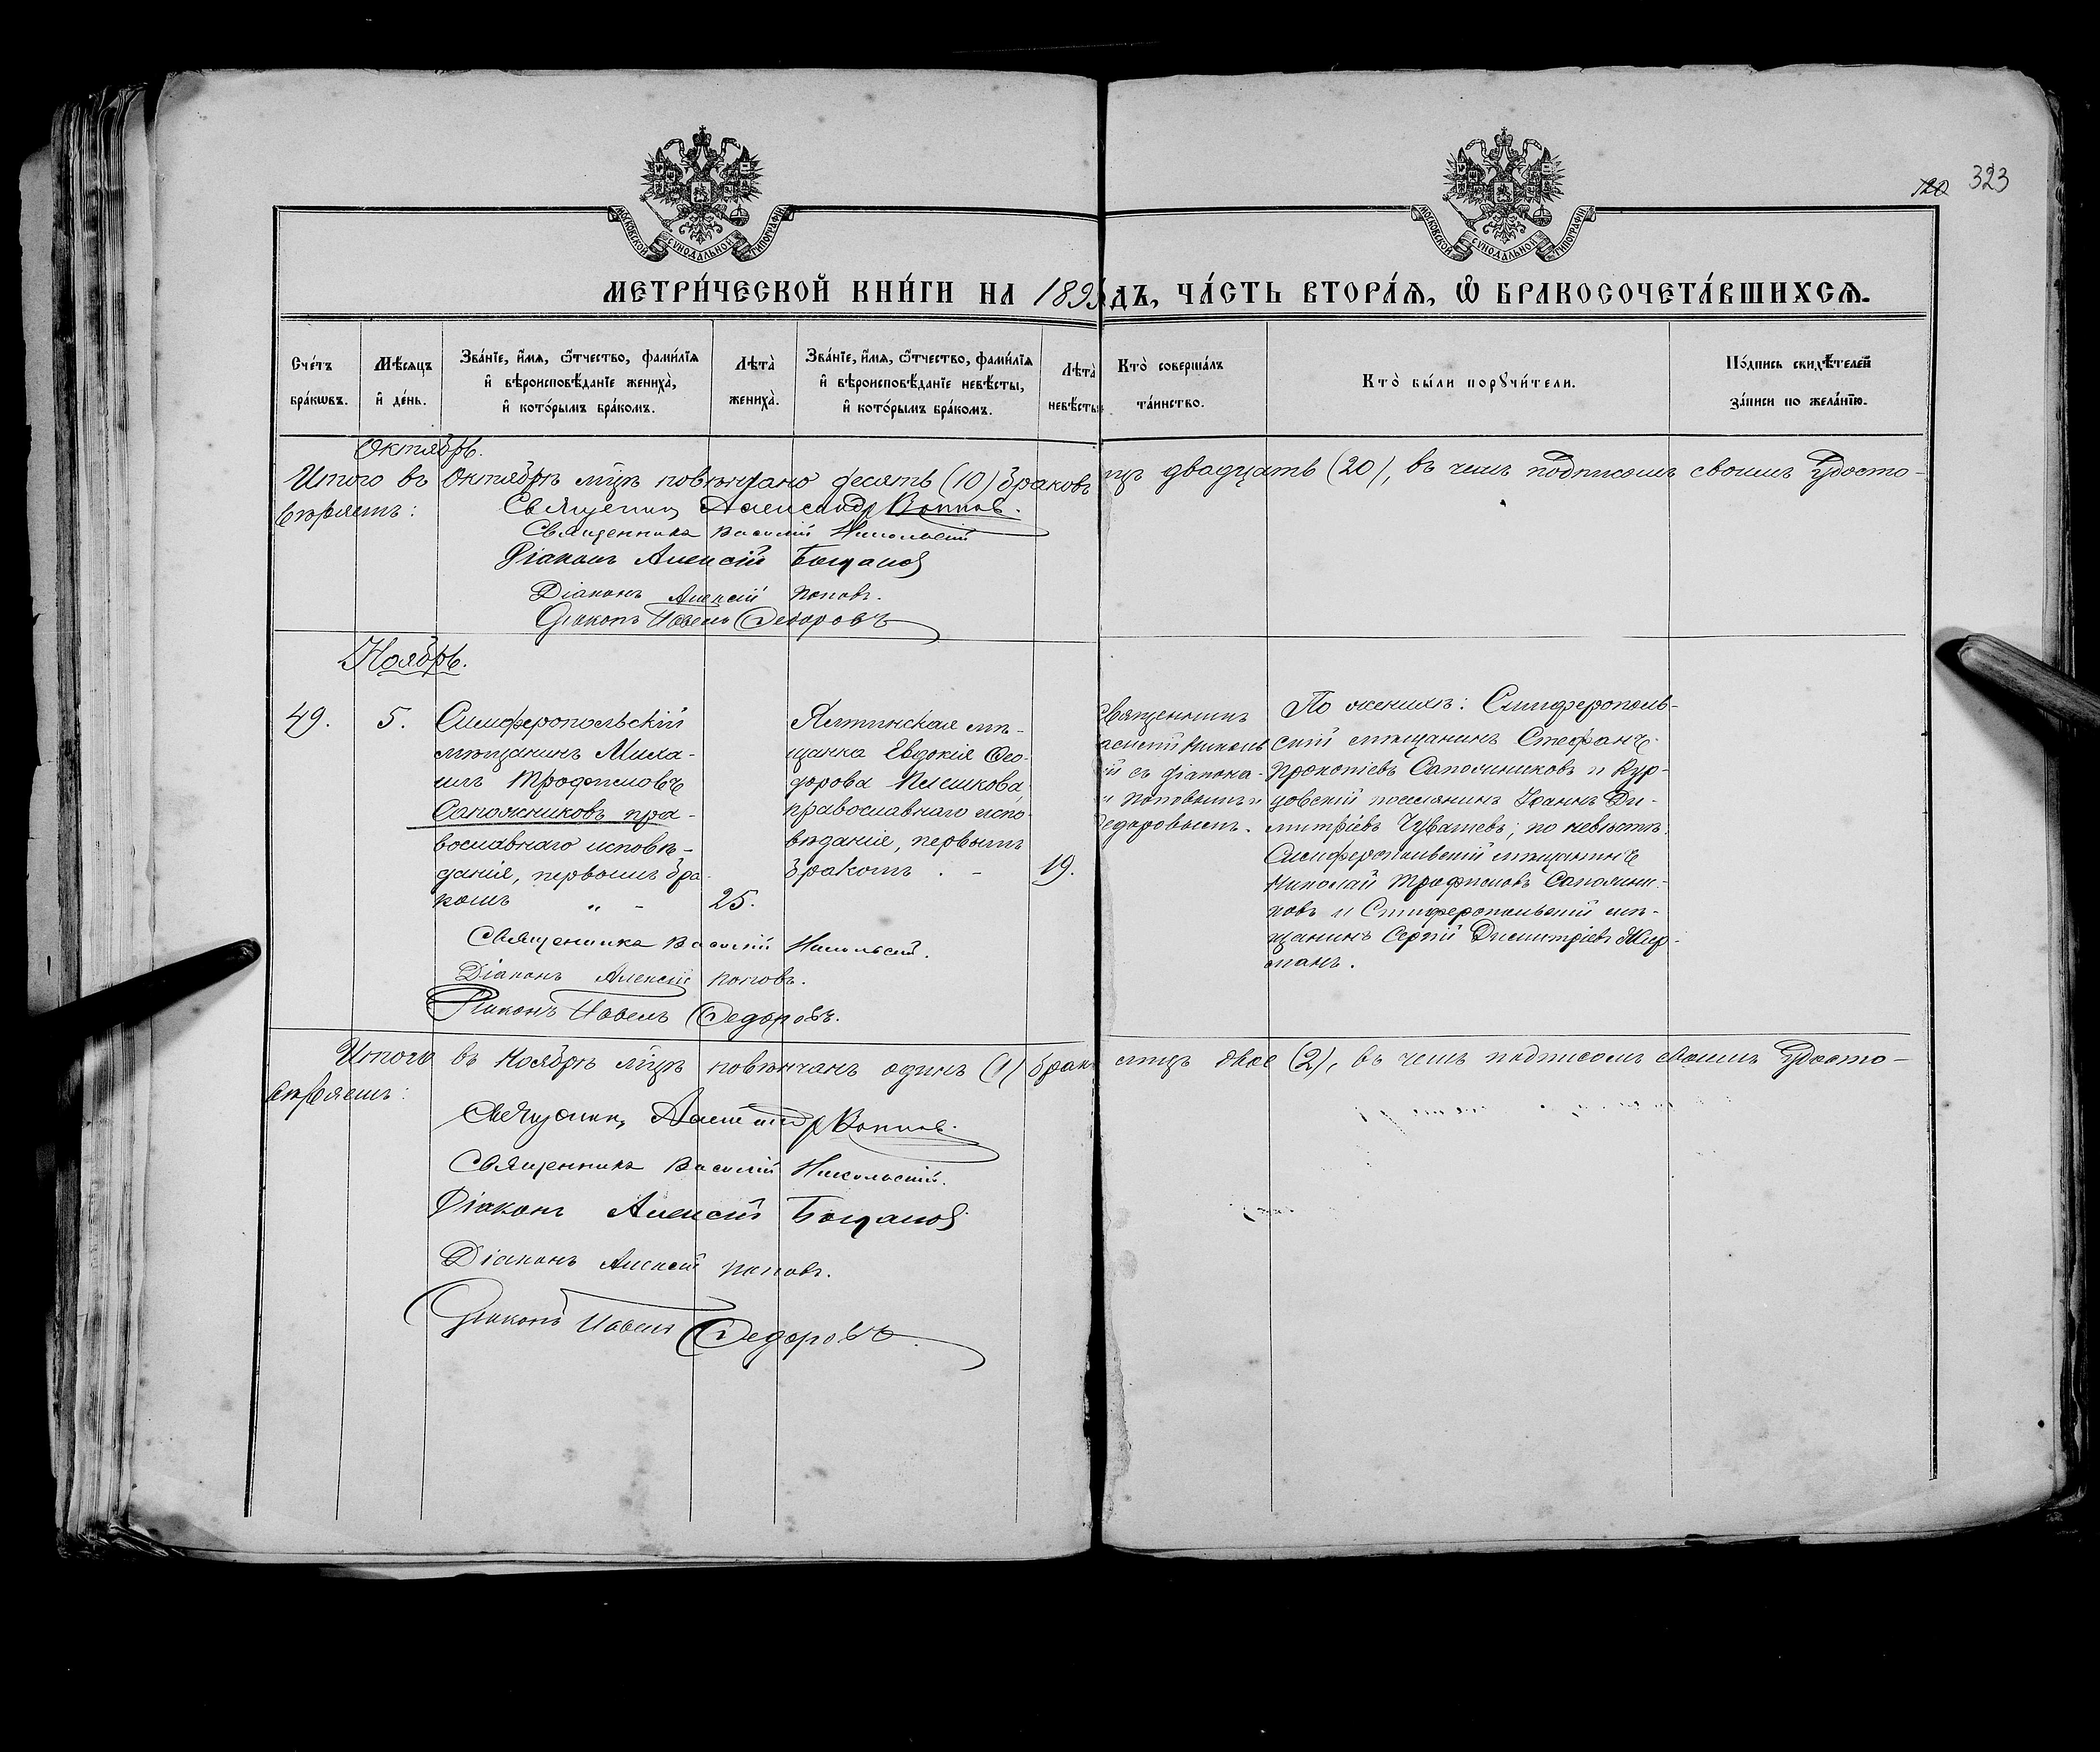 120 323
МОСКОВСКОЙ СѴНОДАЛЬНОЙ ТИПОГРАФІИ
МОСКОВСКОЙ СѴНОДАЛЬНОЙ ТИПОГРАФІИ
МЕТРИ́ЧЕСКОЙ КНИ́ГИ НА 1895 ДЪ, ЧА́СТЬ ВТОРА́Ѧ, Ѽ БРАКОСОЧЕТА́ВШИХСѦ.
Сче́тъ бра́кѡвъ.
Мѣ́сяцъ и҆ де́нь.
Зва́нїе, и҆́мя, ѻ҆́тчество, фами́лїя
и҆ вѣроисповѣ́данїе жениха̀,
и҆ кото́рымъ бра́комъ.
Лѣ́та жениха̀.
Зва́нїе, и҆́мя, ѻ҆́тчество, фами́лїя
и҆ вѣроисповѣ́данїе невѣ́сты,
и҆ кото́рымъ бра́комъ.
Лѣ́та невѣ́сты
Кто̀ соверша́лъ
та́инство.
Кто̀ бы́ли порꙋчи́тели.
По́дпись свидѣ́телей
за́писи по жела́нїю.
Октябрь.
Итого въ Октябрѣ мцѣ повѣнчано десять (10) браковъ лицъ двадцать (20), въ чемъ подписомъ своимъ удосто-
вѣряемъ:
Священник Александр
Священникъ Василій Никольскій
Діаконъ Алексій
Діаконъ Алексій Поповъ.
Діаконъ Павелъ Ѳедоровъ
Ноябрь.
49. 5.
Симферопольскій
мѣщанинъ Миха-
илъ Трофимовъ
Сапожниковъ пра-
вославнаго исповѣ-
данія, первымъ бра-
комъ „ - 25.
Ялтинская мѣ-
щанка Евдокія Ѳео-
дорова
православнаго испо-
вѣданія, первымъ
бракомъ . - 19.
священникъ
асилій Николь
й съ діакона-
и Поповымъ и
едоровымъ.
По женихѣ: Симферополь-
скій мѣщанинъ Стефанъ
Прокопіевъ Сапожниковъ и Кур-
цовскій поселянинъ Іоаннъ Ди-
митріевъ Чувашевъ; по невѣстѣ:
Симферопольскій мѣщанинъ
Николай Трофимовъ Сапожни-
ковъ и Симферопольскій мѣ-
щанинъ Сергій Димитріевъ
Священникъ Василій Никольскій.
Діаконъ Алексій Поповъ.
Діаконъ Павелъ Ѳедоровъ.
Итого въ Ноябрѣ мцѣ повѣнчанъ одинъ (1) бракъ лицъ двое (2), въ чемъ подписомъ своимъ удосто-
вѣряемъ:
Священник Александр
Священникъ Василій Никольскій.
Діаконъ Алексій
Діаконъ Алексій Поповъ.
Діаконъ Павелъ Ѳедоровъ.